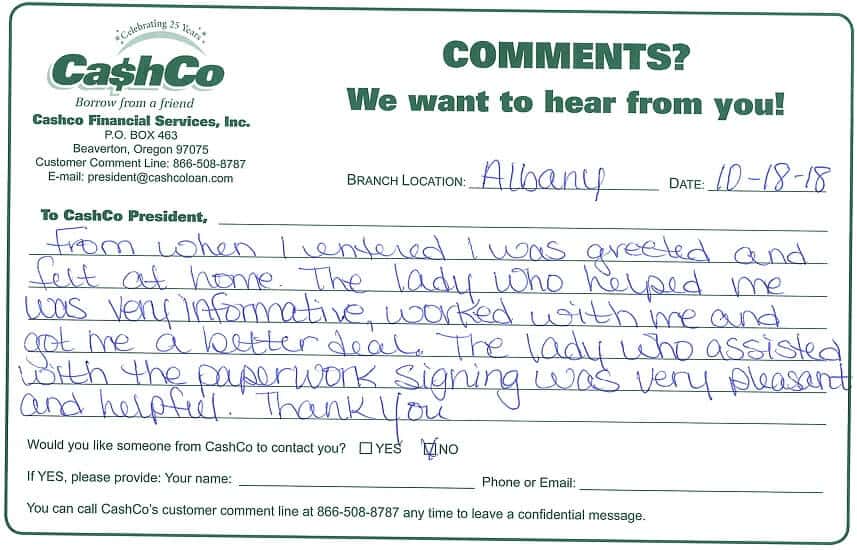 Celebrating 25 Years
Ca$hCo
Borrow from a friend
Cashco Financial Services, Inc.
P.O. BOX 463
Beaverton, Oregon 97075
Customer Comment Line: 866-508-8787
E-mail: president@cashcoloan.com
COMMENTS?
We want to hear from you!
BRANCH LOCATION: Albany DATE: 10-18-18
To CashCo President,
From when I entered I was greeted and
felt at home. The lady who helped me
was very informative, worked with me and
got me a better deal. The lady who assisted
with the paperwork signing was very pleasant
and helpful. Thank You
Would you like someone from CashCo to contact you? YES NO
If YES, please provide: Your name: Phone or Email:
You can call CashCo's customer comment line at 866-508-8787 any time to leave a confidential message.